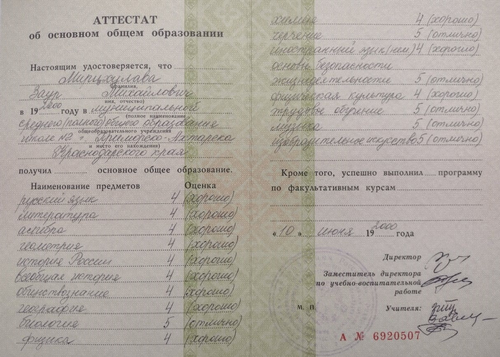 АТТЕСТАТ
об основном общем образовании
Настоящим удостоверяется, что
Мирцхулава
фамилия,
Заур Михайлович
имя, отчество)
в 19 2000 году в муниципальной
(полное наименование
среднего (полного) общего образования
общеобразовательного учреждения
школе № Приморско-Ахтарска
и место его нахождения)
Краснодарского края
получил основное общее образование.
Наименование предметов Оценка
русский язык 4 (хорошо)
литература 4 (хорошо)
алгебра 4 (хорошо)
геометрия 4 (хорошо)
история России 4 (хорошо)
всеобщая история 4 (хорошо)
обществознание 4 (хорошо)
география 4 (хорошо)
биология 5 (отлично)
физика 4 (хорошо)
химия 4 (хорошо)
черчение 5 (отлично)
иностранный язык (нем) 4 (хорошо)
основы безопасности
жизнедеятельности 5 (отлично)
физическая культура 4 (хорошо)
трудовое обучение 5 (отлично)
музыка 5 (отлично)
изобразительное искусство 5 (отлично)
Кроме того, успешно выполнил программу
по факультативным курсам
« 10 » июня 19 2000 года
Директор
Заместитель директора
по учебно-воспитательной
работе
М. П. Учителя:
А № 6920507